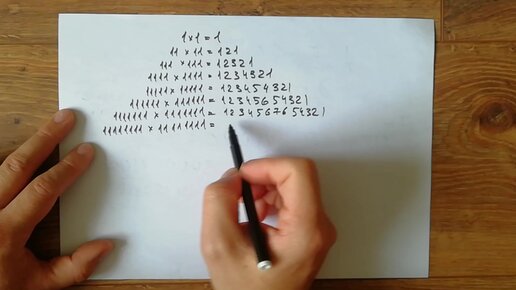 1 × 1 = 1
11 × 11 = 121
111 × 111 = 12321
1111 × 1111 = 1234321
11111 × 11111 = 123454321
111111 × 111111 = 12345654321
1111111 × 1111111 = 1234567654321
11111111 × 11111111 =